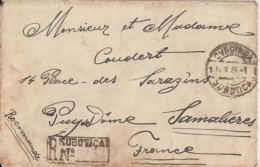 Monsieur et Madame
Coudert
14 Place des Sarazins
Puy Dôme Samalières
France
Recommandé
SUBOTICA
R No
SUBOTICA